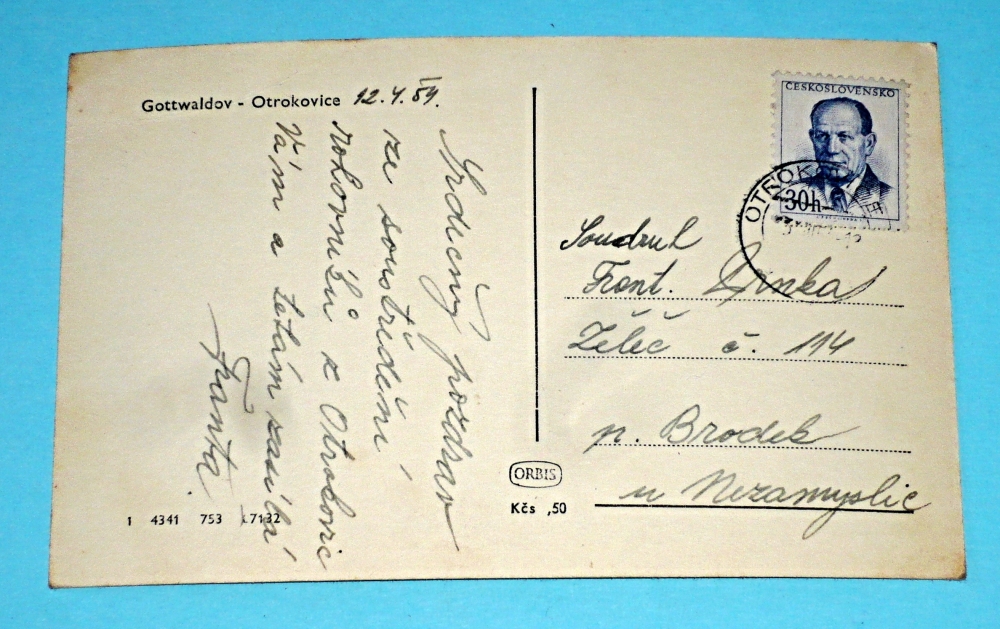 Gottwaldov - Otrokovice 12.4.54.
Srdečný pozdrav
ze soustředění
rohovníků z Otrokovic
Vám a Letám zasílá
Franta
1 4341 753 L7132
ORBIS
Kčs ,50
ČESKOSLOVENSKO
30h
OTROK
Soudruh
Frant. Drnka
Želeč č. 114
p. Brodek
u Nezamyslic